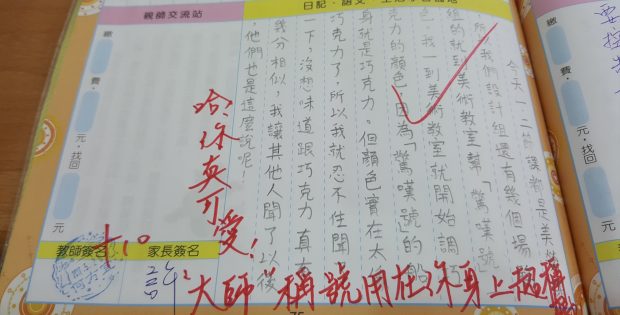 親師交流站
日記‧語文‧生活
今天一二節課都是美
所以我們設計組還有幾個場
組的就到美術教室幫「驚嘆號」
我一到美術教室就開始調巧
克力的顏色,因為「驚嘆號」的
身就是巧克力。但顏色實在太
巧克力了,所以我就忍不住聞
一下,沒想味道跟巧克力真有
幾分相似,我讓其他人聞了以後
,他們也是這麼說呢。
哈,你真可愛!
"大師"稱號用在你身上
繳
費‧
元‧找回
元
教師簽名
家長簽名
+10
繳
費‧
元‧找回
75